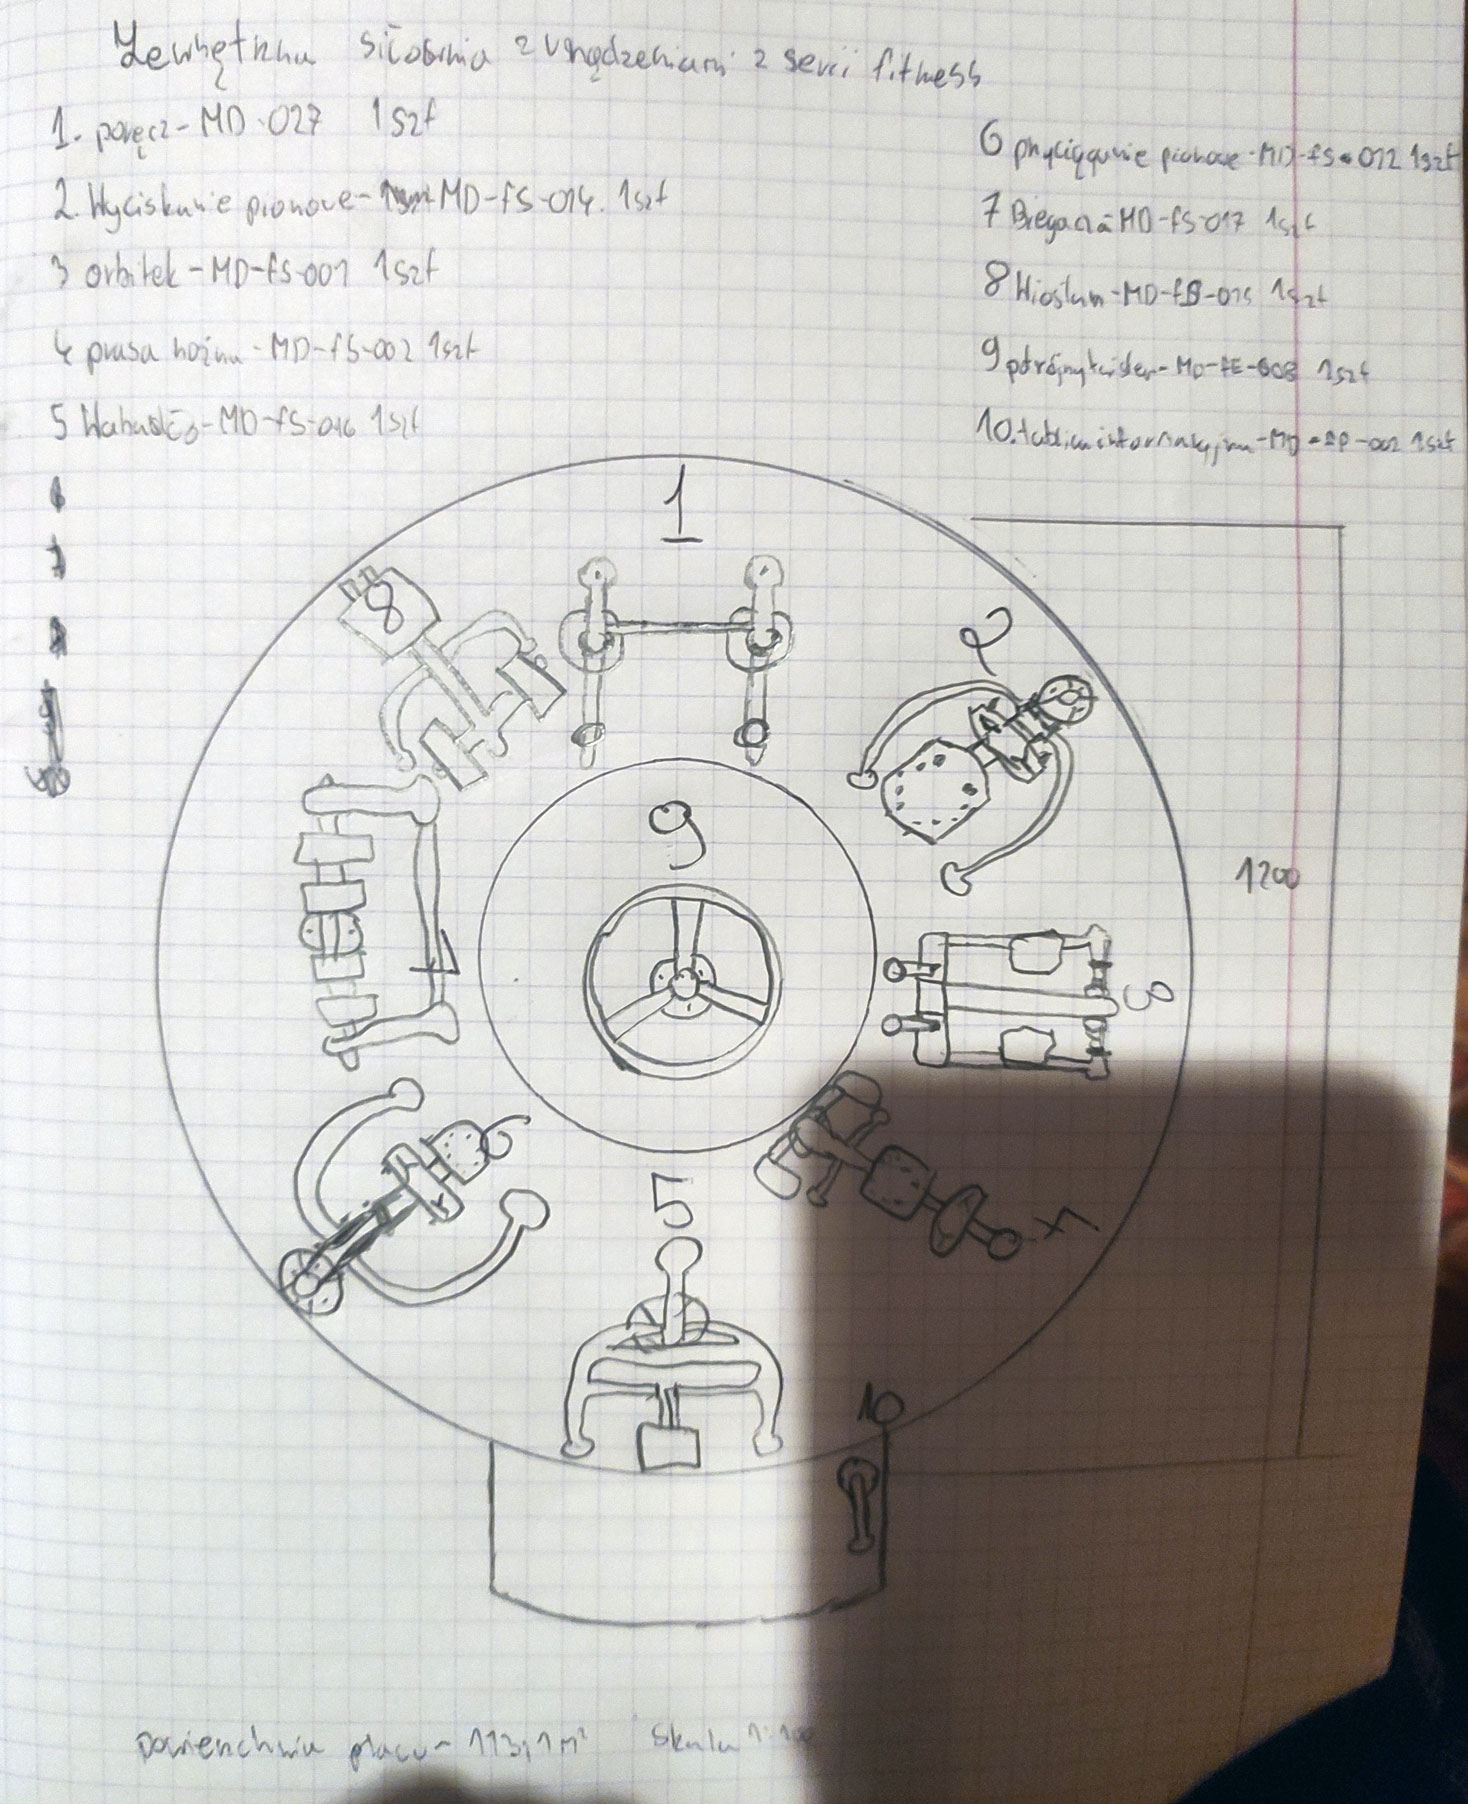 Zewnętrzna siłownia z urządzeniami z serii fitness
1. poręcz - MD-027 1szt
2. Wyciskanie pionowe - MD-FS-014. 1szt
3 orbitek - MD-FS-001 1szt
4 prasa nożna - MD-FS-002 1szt
5 Wahadło - MD-FS-016 1szt
6 przyciąganie pionowe - MD-FS-012 1szt
7 Biegacz - MD-FS-017 1szt
8 Wioślarz - MD-FS-015 1szt
9 potrójny twister - MD-FE-008 1szt
10. tablica informacyjna - MD-RP-002 1szt
6
7
8
9
1
8
2
9
1200
3
7
6
5
4
10
Powierzchnia placu - 113,1 m²
Skala 1:100